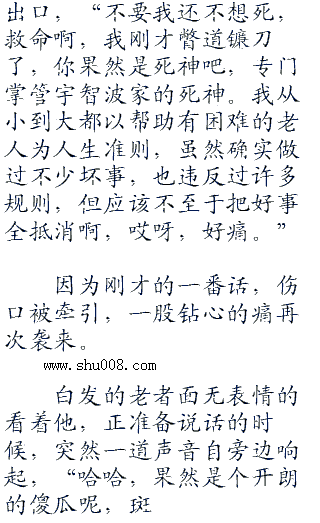 出口，“不要我还不想死，
救命啊，我刚才瞥道镰刀
了，你果然是死神吧，专门
掌管宇智波家的死神。我从
小到大都以帮助有困难的老
人为人生准则，虽然确实做
过不少坏事，也违反过许多
规则，但应该不至于把好事
全抵消啊，哎呀，好痛。”
因为刚才的一番话，伤
口被牵引，一股钻心的痛再
次袭来。
www.shu008.com
白发的老者面无表情的
看着他，正准备说话的时
候，突然一道声音自旁边响
起，“哈哈，果然是个开朗
的傻瓜呢，斑